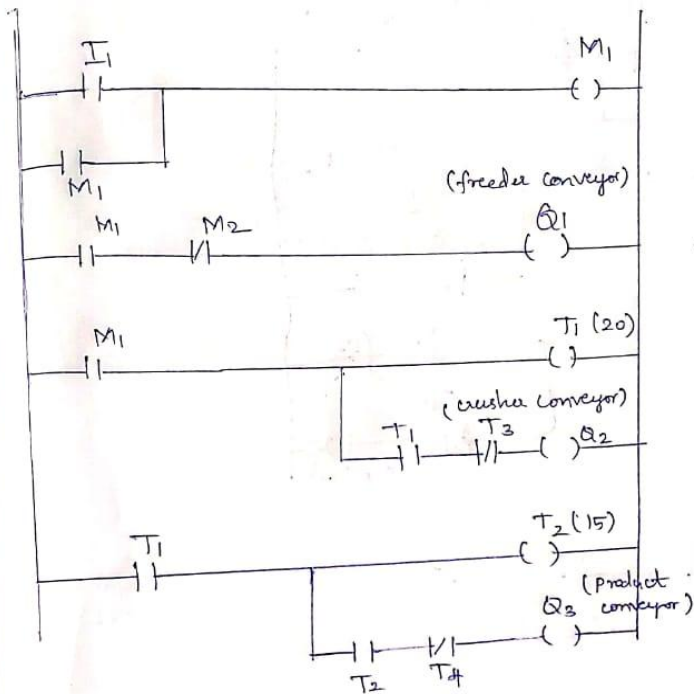 I1
M1
M1
(freeder conveyor)
M1
M2
Q1
M1
T1 (20)
(crusher conveyor)
T1
T3
Q2
T2 (15)
T1
(product
Q3 conveyor)
T2
T4